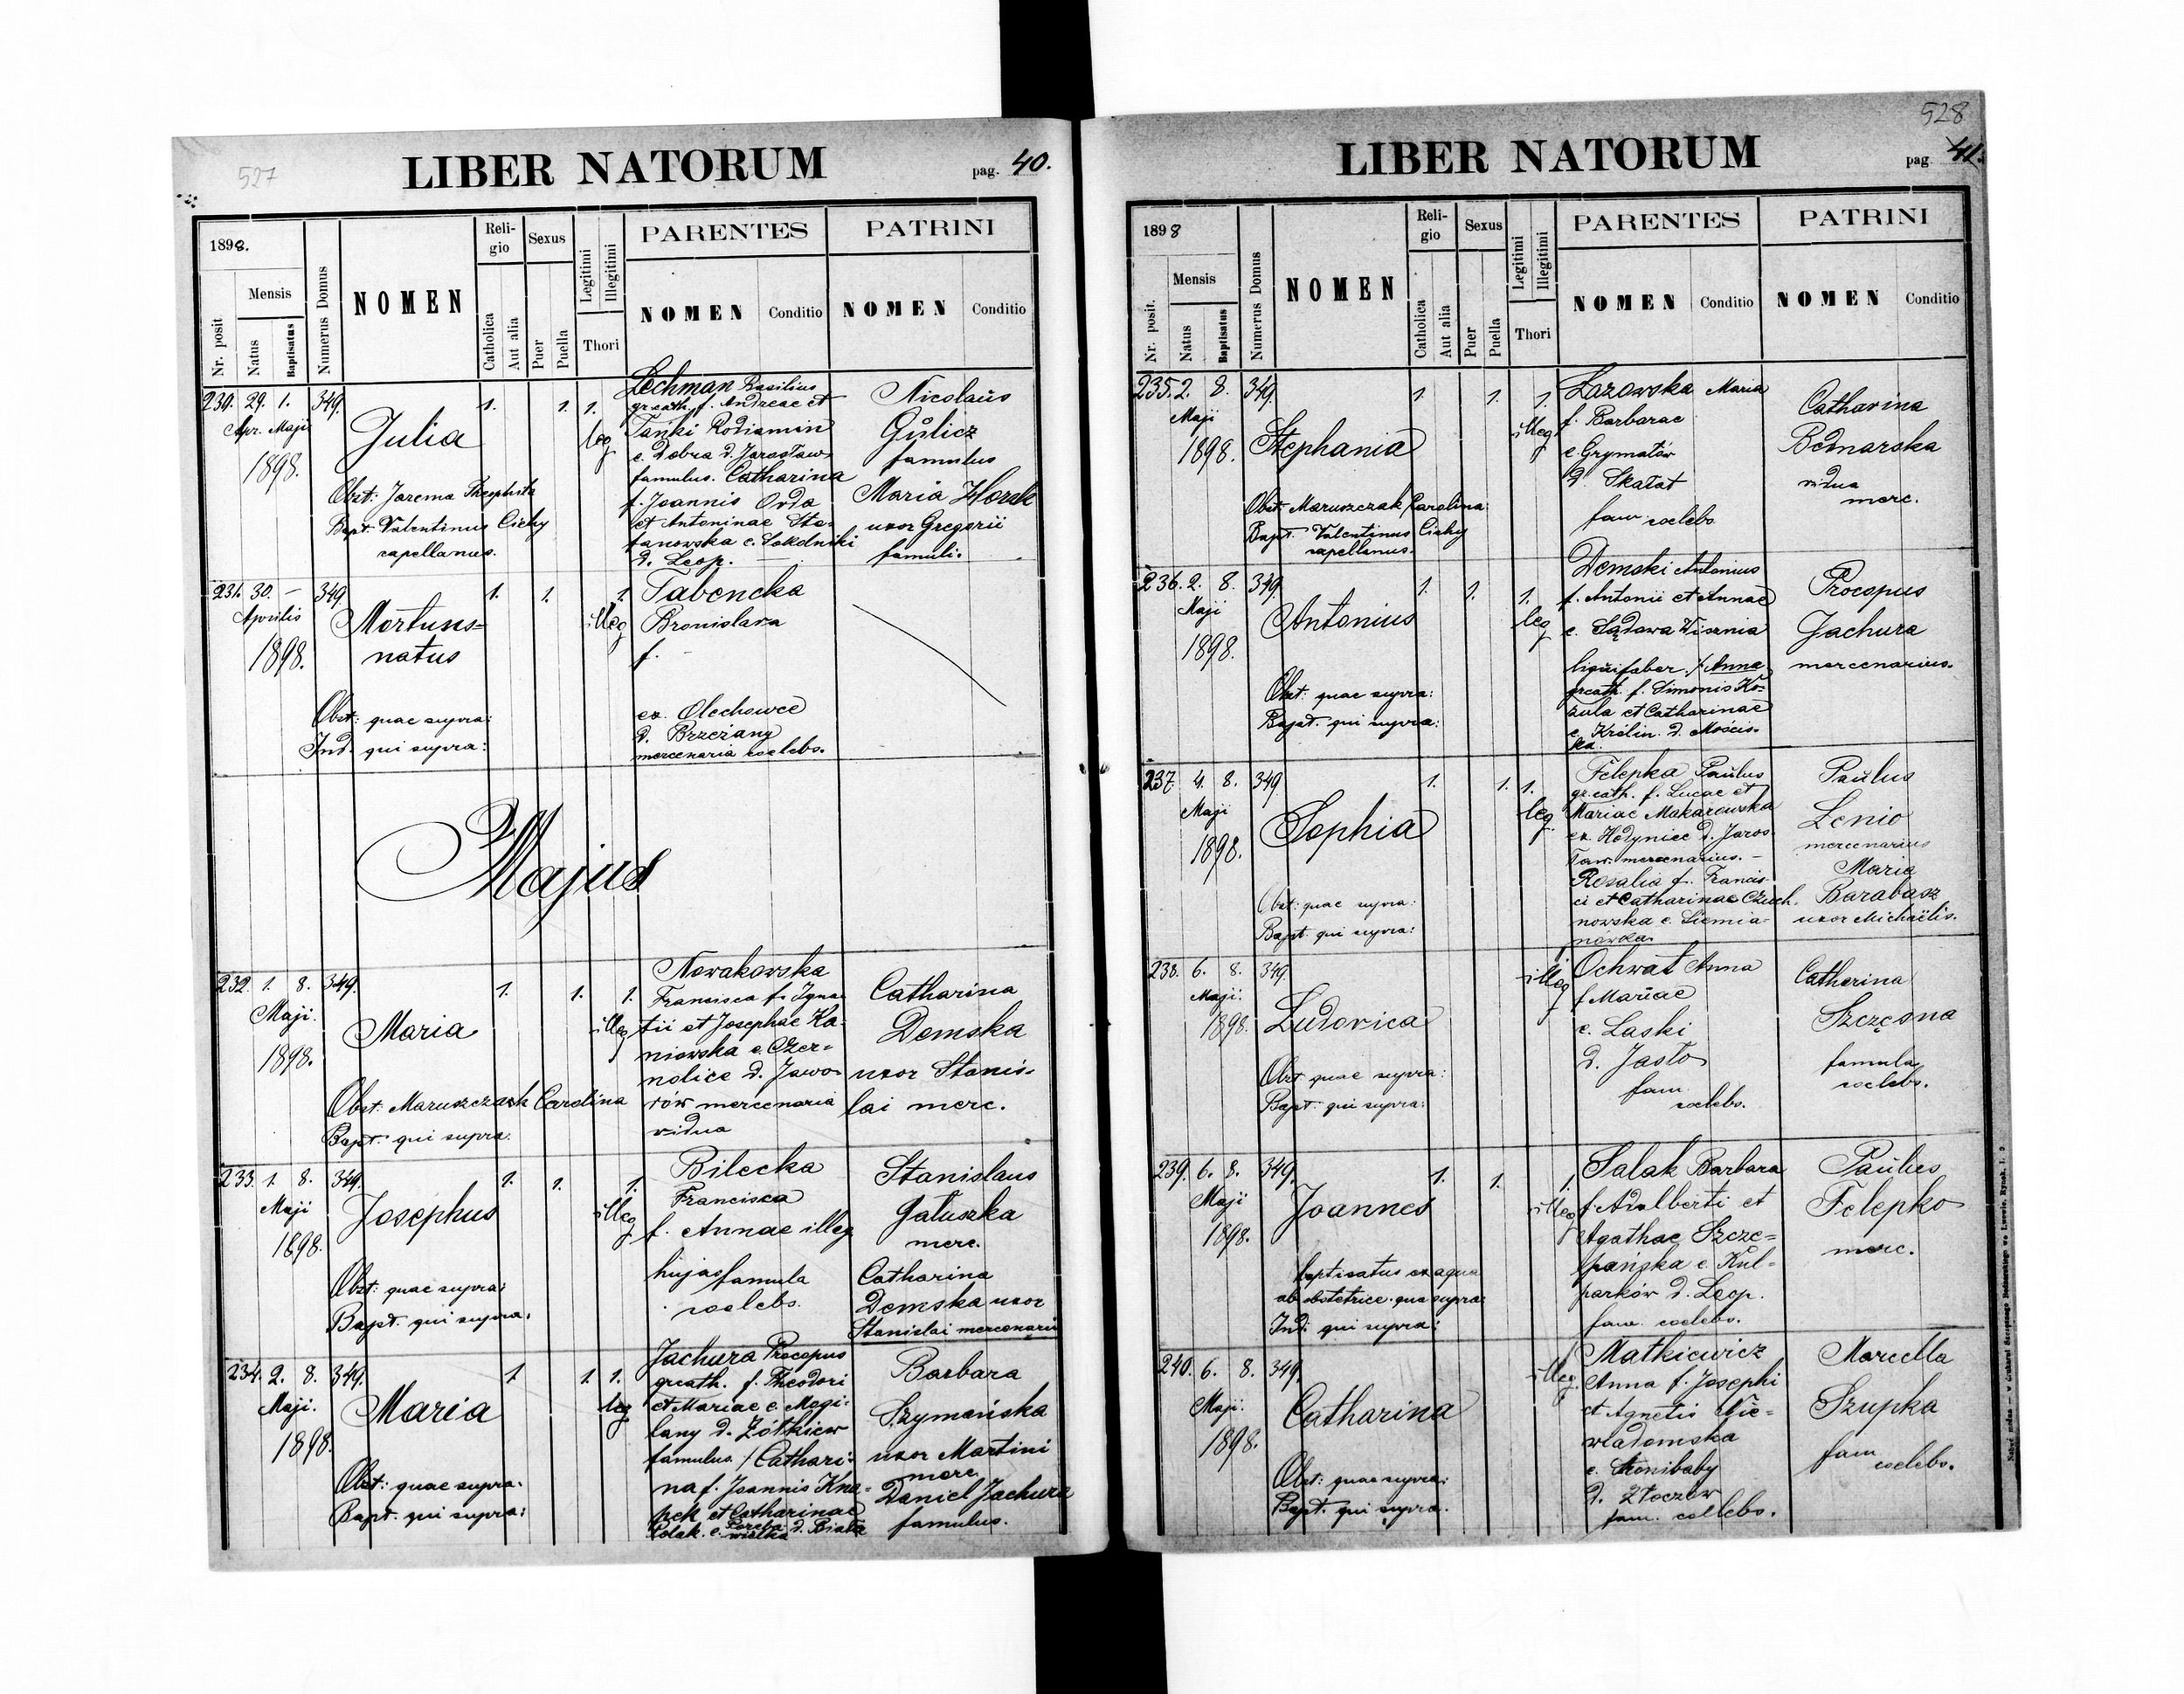 527
LIBER NATORUM
pag. 40.
1898.
Nr. posit
Mensis
Natus
Baptisatus
Numerus Domus
NOMEN
Religio
Catholica
Aut alia
Sexus
Puer
Puella
Legitimi
Illegitimi
Thori
PARENTES
NOMEN
Conditio
PATRINI
NOMEN
Conditio
230. 29. 1. 349.
Apr. Maji
1898.
Julia
1. 1. 1.
leg
Obst: Jarema Theophila
Bapt. Valentinus Cichy
capellanus.
Lechman Basilius
gr cath. f. Andreae et
Tańki Rodiamin
e. Dobra d. Jarosław
famulus. Catharina
f. Joannis Orda
et Antoninae Sto-
janowska e. Sokolniki
d. Leop.
Nicolaus
Gulicz
famulus
Maria
uxor Gregorii
famuli.
231. 30. — 349.
Aprilis
1898.
Mortuus=
natus
1. 1. 1.
illeg
Obst: quae supra:
Ind. qui supra:
Tabencka
Bronislava
f. -
ex. Olechowce
d. Brzeżany
mercenaria coelebs.
Majus
232. 1. 8. 349.
Maji.
1898.
Maria
1. 1. 1.
illeg
Obst: Maruszczak Carolina
Bapt: qui supra.
Nowakowska
Francisca f. Igna-
tii et Josephae Ka-
niowska e. Czer=
nolice d. Jawo-
rów mercenaria
vidua
Catharina
Demska
uxor Stanis-
lai merc.
233. 1. 8. 349.
Maji
1898.
Josephus
1. 1. 1.
illeg
Obst: quae supra:
Bapt. qui supra.
Bilecka
Francisca
f. Annae illeg
hujas famula
coelebs.
Stanislaus
Gałuszka
merc.
Catharina
Demska uxor
Stanislai mercenarii
234. 2. 8. 349.
Maji.
1898.
Maria
1 1. 1.
leg
Obst: quae supra:
Bapt. qui supra:
Jachura Procopus
grcath. f. Theodori
et Mariae e. Mogi-
lany d. Żółkiew
famulus / Cathari-
na f. Joannis Kna-
pek et Catharinae
Polak. e. Poręba d. Biała
wielka
Barbara
Szymańska
uxor Martini
merc.
Daniel Jachura
famulus.
528
LIBER NATORUM
pag 41.
1898
Nr. posit.
Mensis
Natus
Baptisatus
Numerus Domus
NOMEN
Religio
Catholica
Aut alia
Sexus
Puer
Puella
Legitimi
Illegitimi
Thori
PARENTES
NOMEN
Conditio
PATRINI
NOMEN
Conditio
235. 2. 8. 349.
Maji
1898.
Stephania
1. 1. 1.
illeg
Obst: Maruszczak Karolina
Bapt. Valentinus Cichy
capellanus.
Lazowska Maria
f. Barbarae
e Grymałów
d. Skałat
fam. coelebs
Catharina
Bednarska
vidua
merc.
236. 2. 8. 349.
Maji
1898.
Antonius
1. 1. 1.
leg
Obst: quae supra:
Bapt. qui supra:
Demski Antonius
f. Antonii et Annae
e. Sądowa Wisznia
lignifaber. / Anna
grcath. f. Simonis Ko-
zula et Catharinae
e. Królin. d. Mościs-
ka.
Procopus
Jachura
mercenarius.
237. 4. 8. 349
Maji
1898.
Sophia
1. 1. 1.
leg.
Obst: quae supra:
Bapt. qui supra:
Felepka Paulus
gr cath. f. Lucae et
Mariae Makarowska
ex. Hodynice d. Jaros
ław. mercenarius. -
Rosalia f. Francis-
ci et Catharinae Czuch.
nowska e. Siemia-
nówka.
Paulus
Lenio
mercenarius
Maria
Barabasz
uxor Michaëlis.
238. 6. 8. 349.
Maji.
1898.
Ludovica
illeg
Obst quae supra:
Bapt: qui supra:
Ochwat Anna
f Mariae
e. Laski
d. Jasło
fam.
coelebs.
Catharina
Szczęsna
famula
coelebs.
239. 6. 8. 349.
Maji
1898.
Joannes
1. 1. 1.
illeg
baptisatus ex aqua
ab obstetrice. quae supra:
Ind. qui supra:
Salak Barbara
f. Adalberti et
Agathae Szcze=
pańska e Kul-
parków d. Leop.
fam. coelebs.
Paulus
Felepko
merc.
240. 6. 8. 349.
Maji.
1898.
Catharina
illeg.
Obst: quae supra:
Bapt. qui supra.
Matkiewicz
Anna f. Josephi
et Agnetis Nie-
wiadomska
e. Stronibaby
d. Złoczów
fam. coelebs.
Marcella
Szupka
fam
coelebs.